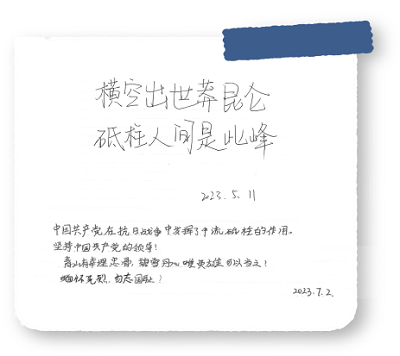 横空出世莽昆仑
砥柱人间是此峰
2023.5.11
中国共产党在抗日战争中发挥了中流砥柱的作用。
坚持中国共产党的领导!
青山有幸埋忠骨,碧雪丹心唯英雄可以当之!
缅怀先烈,勿忘国耻!
2023.7.2.